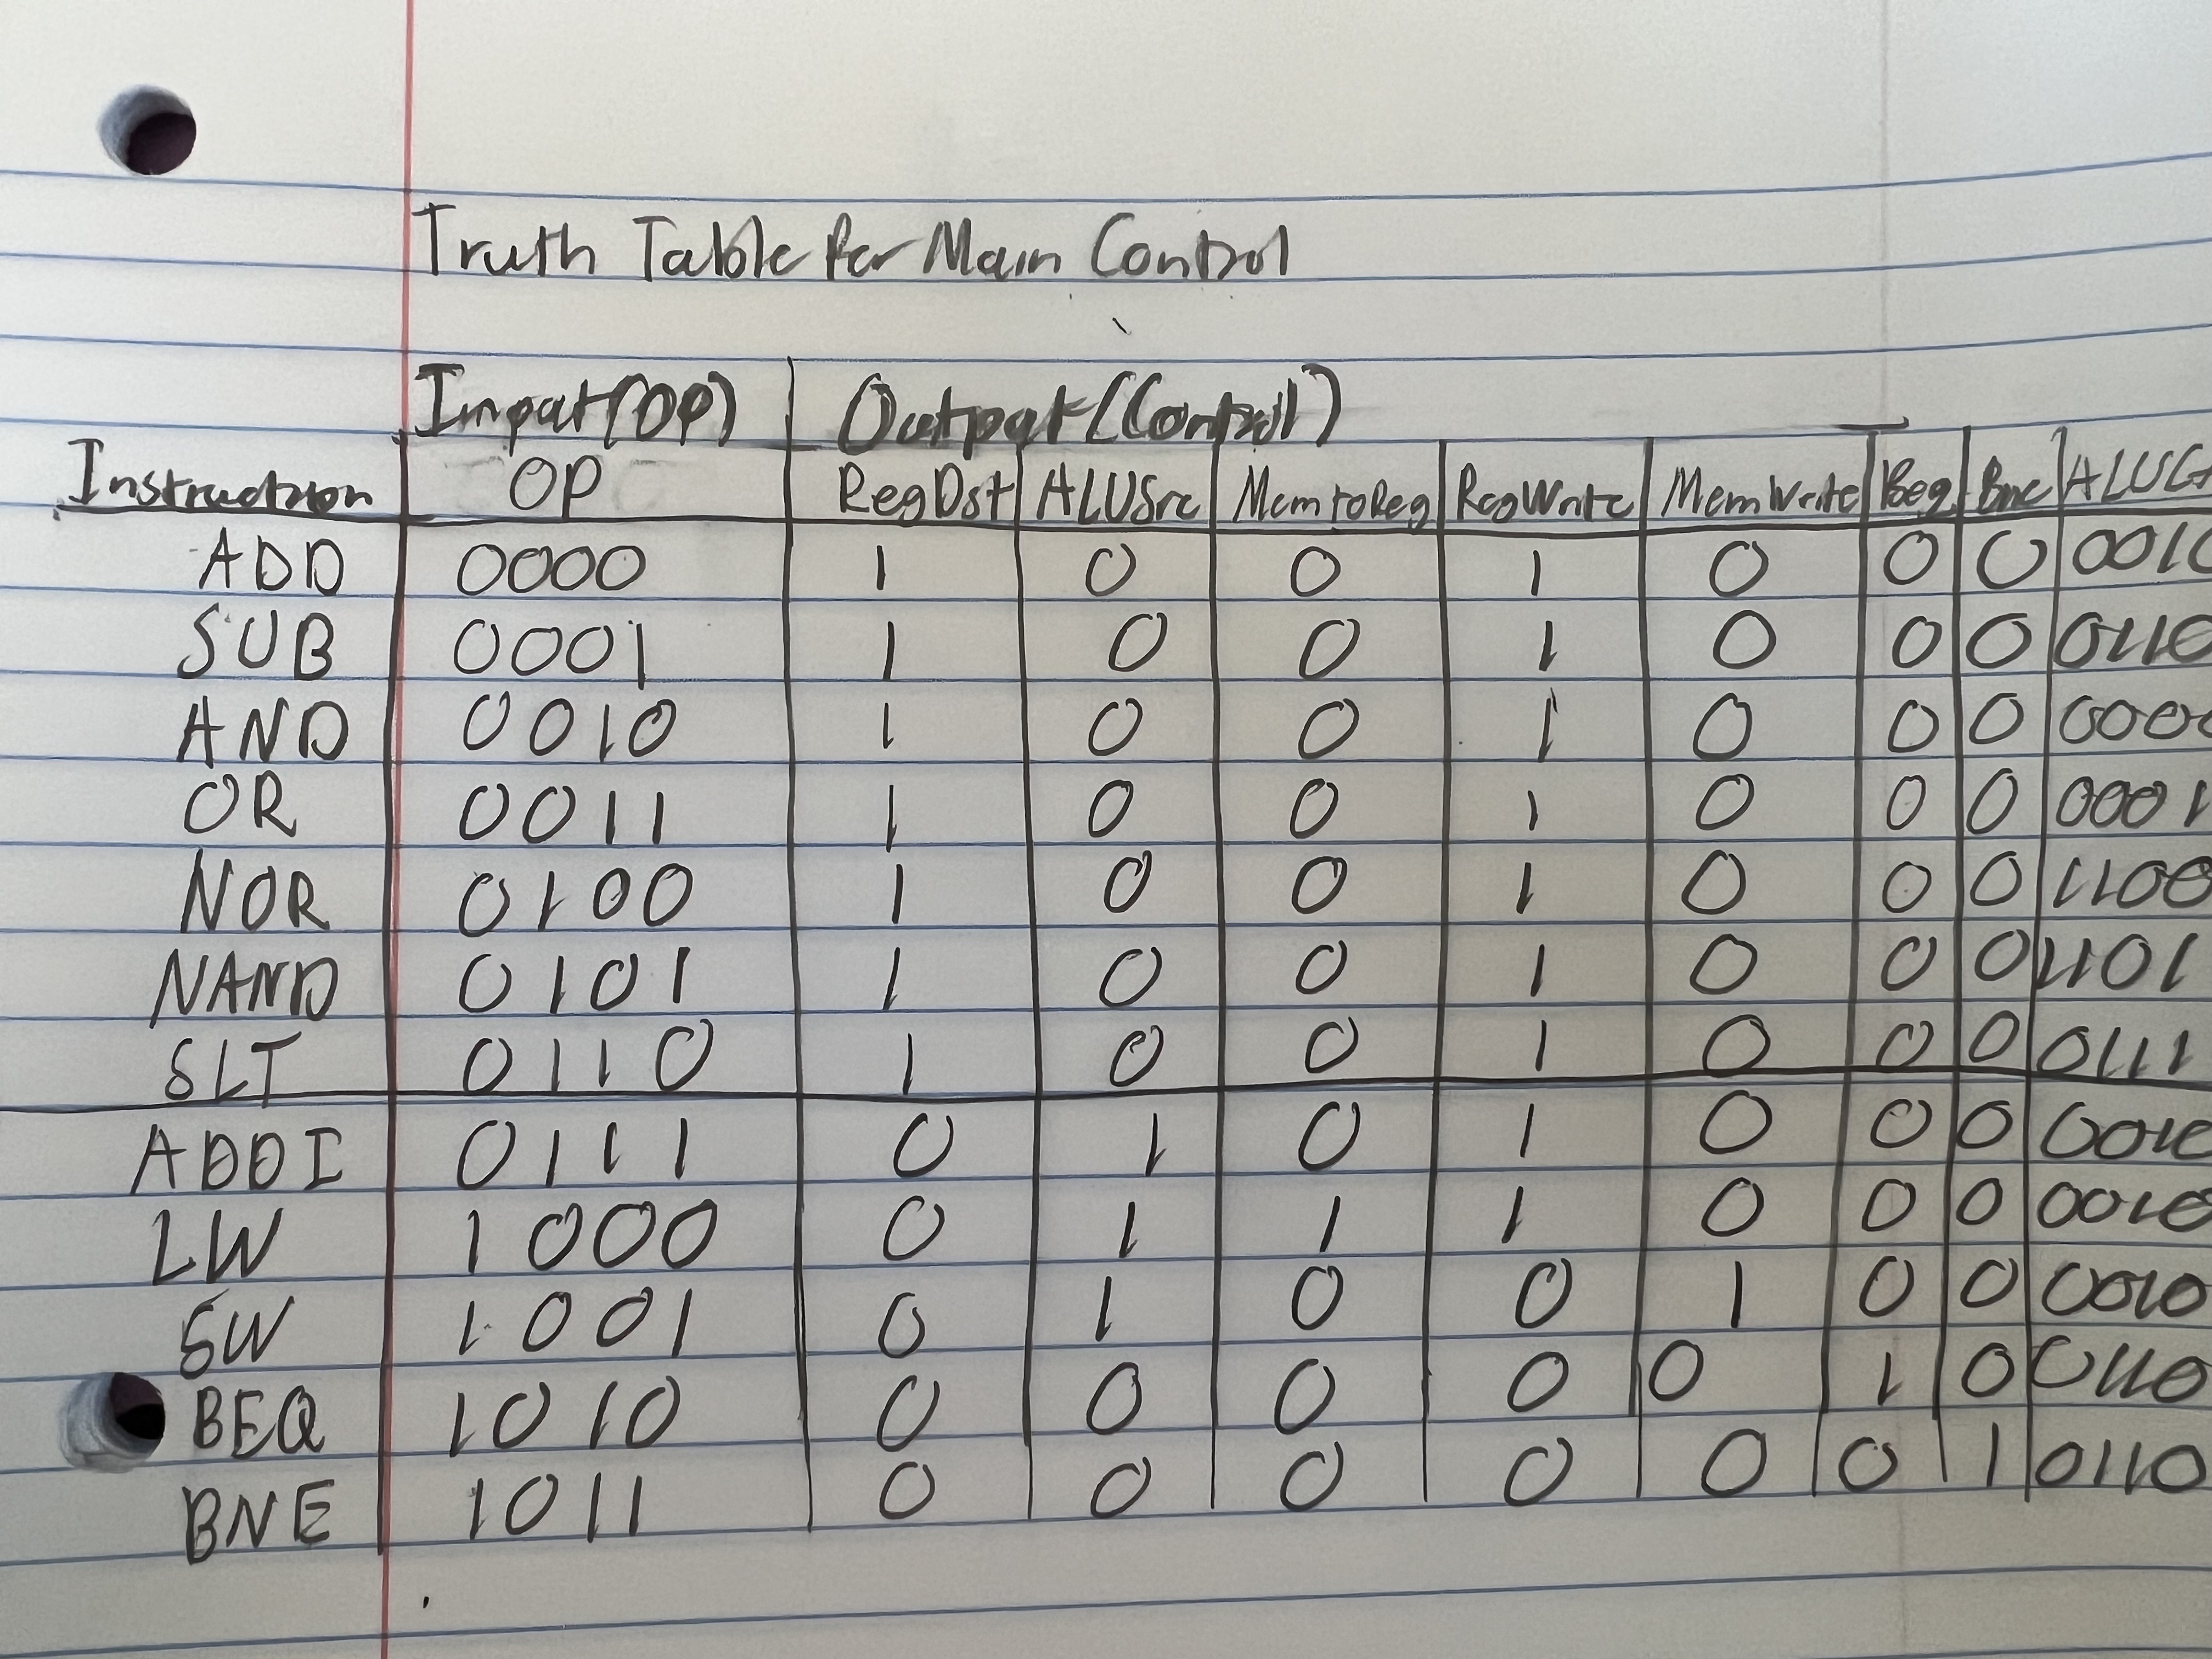 Truth Table for Main Control
Input(OP) Output(Control)
Instruction OP RegDst ALUSrc MemtoReg RegWrite MemWrite Beq Bne
ADD 0000 1 0 0 1 0 0 0 0010
SUB 0001 1 0 0 1 0 0 0 0110
AND 0010 1 0 0 1 0 0 0 0000
OR 0011 1 0 0 1 0 0 0 0001
NOR 0100 1 0 0 1 0 0 0 1100
NAND 0101 1 0 0 1 0 0 0 1101
SLT 0110 1 0 0 1 0 0 0 0111
ADDI 0111 0 1 0 1 0 0 0 0010
LW 1000 0 1 1 1 0 0 0 0010
SW 1001 0 1 0 0 1 0 0 0010
BEQ 1010 0 0 0 0 0 1 0 0110
BNE 1011 0 0 0 0 0 0 1 0110